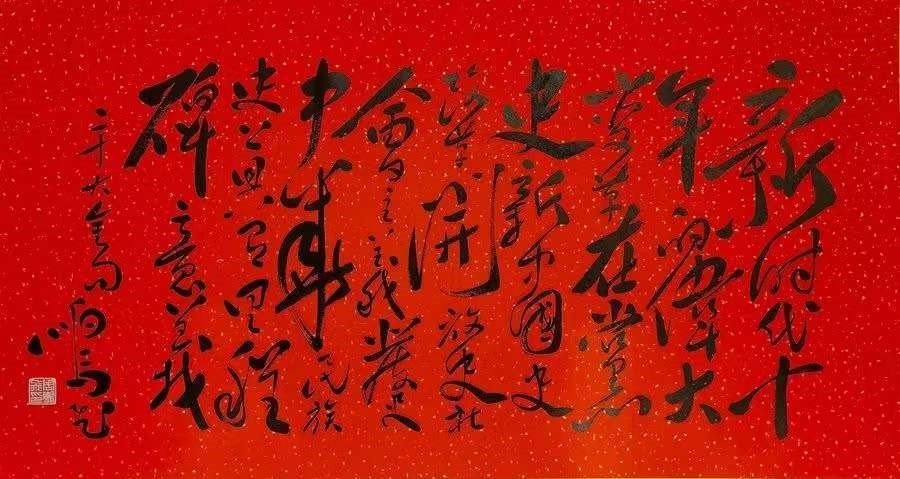 新时代十
年的伟大
变革在党
史新中国史
改革开放史社
会主义发展史
中华民族
史上具有里程
碑意义
二十大金句